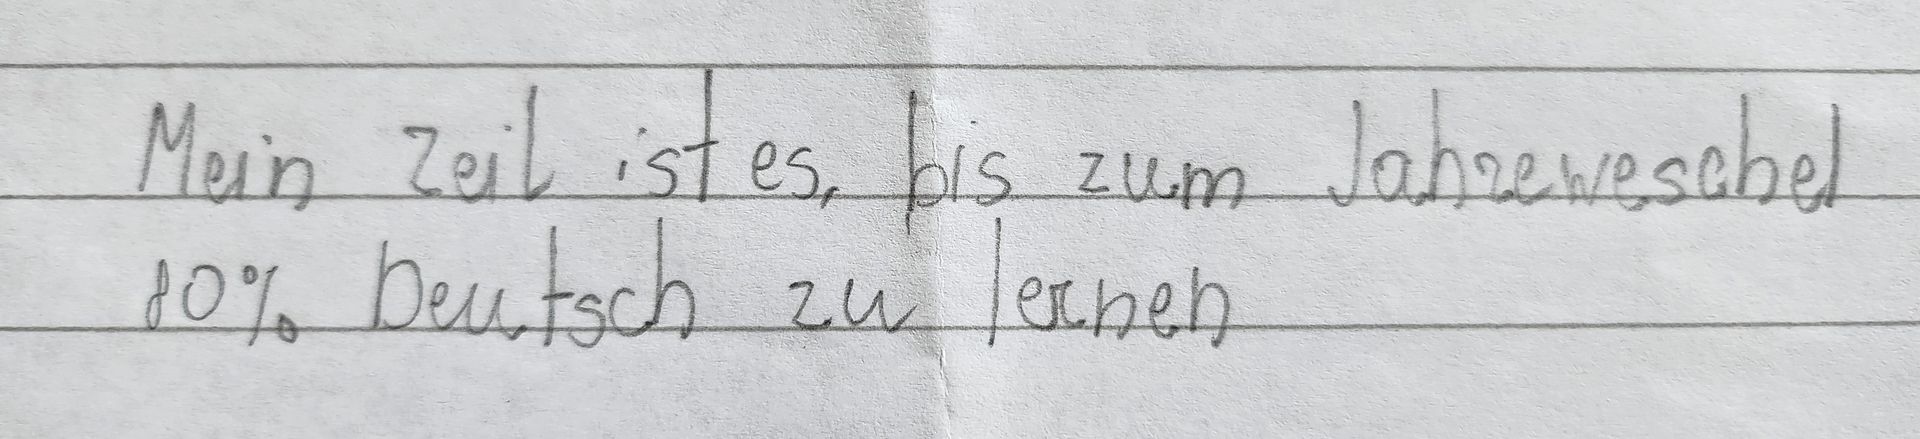 Mein Zeil ist es, bis zum Jahreweschel
80% Deutsch zu lernen